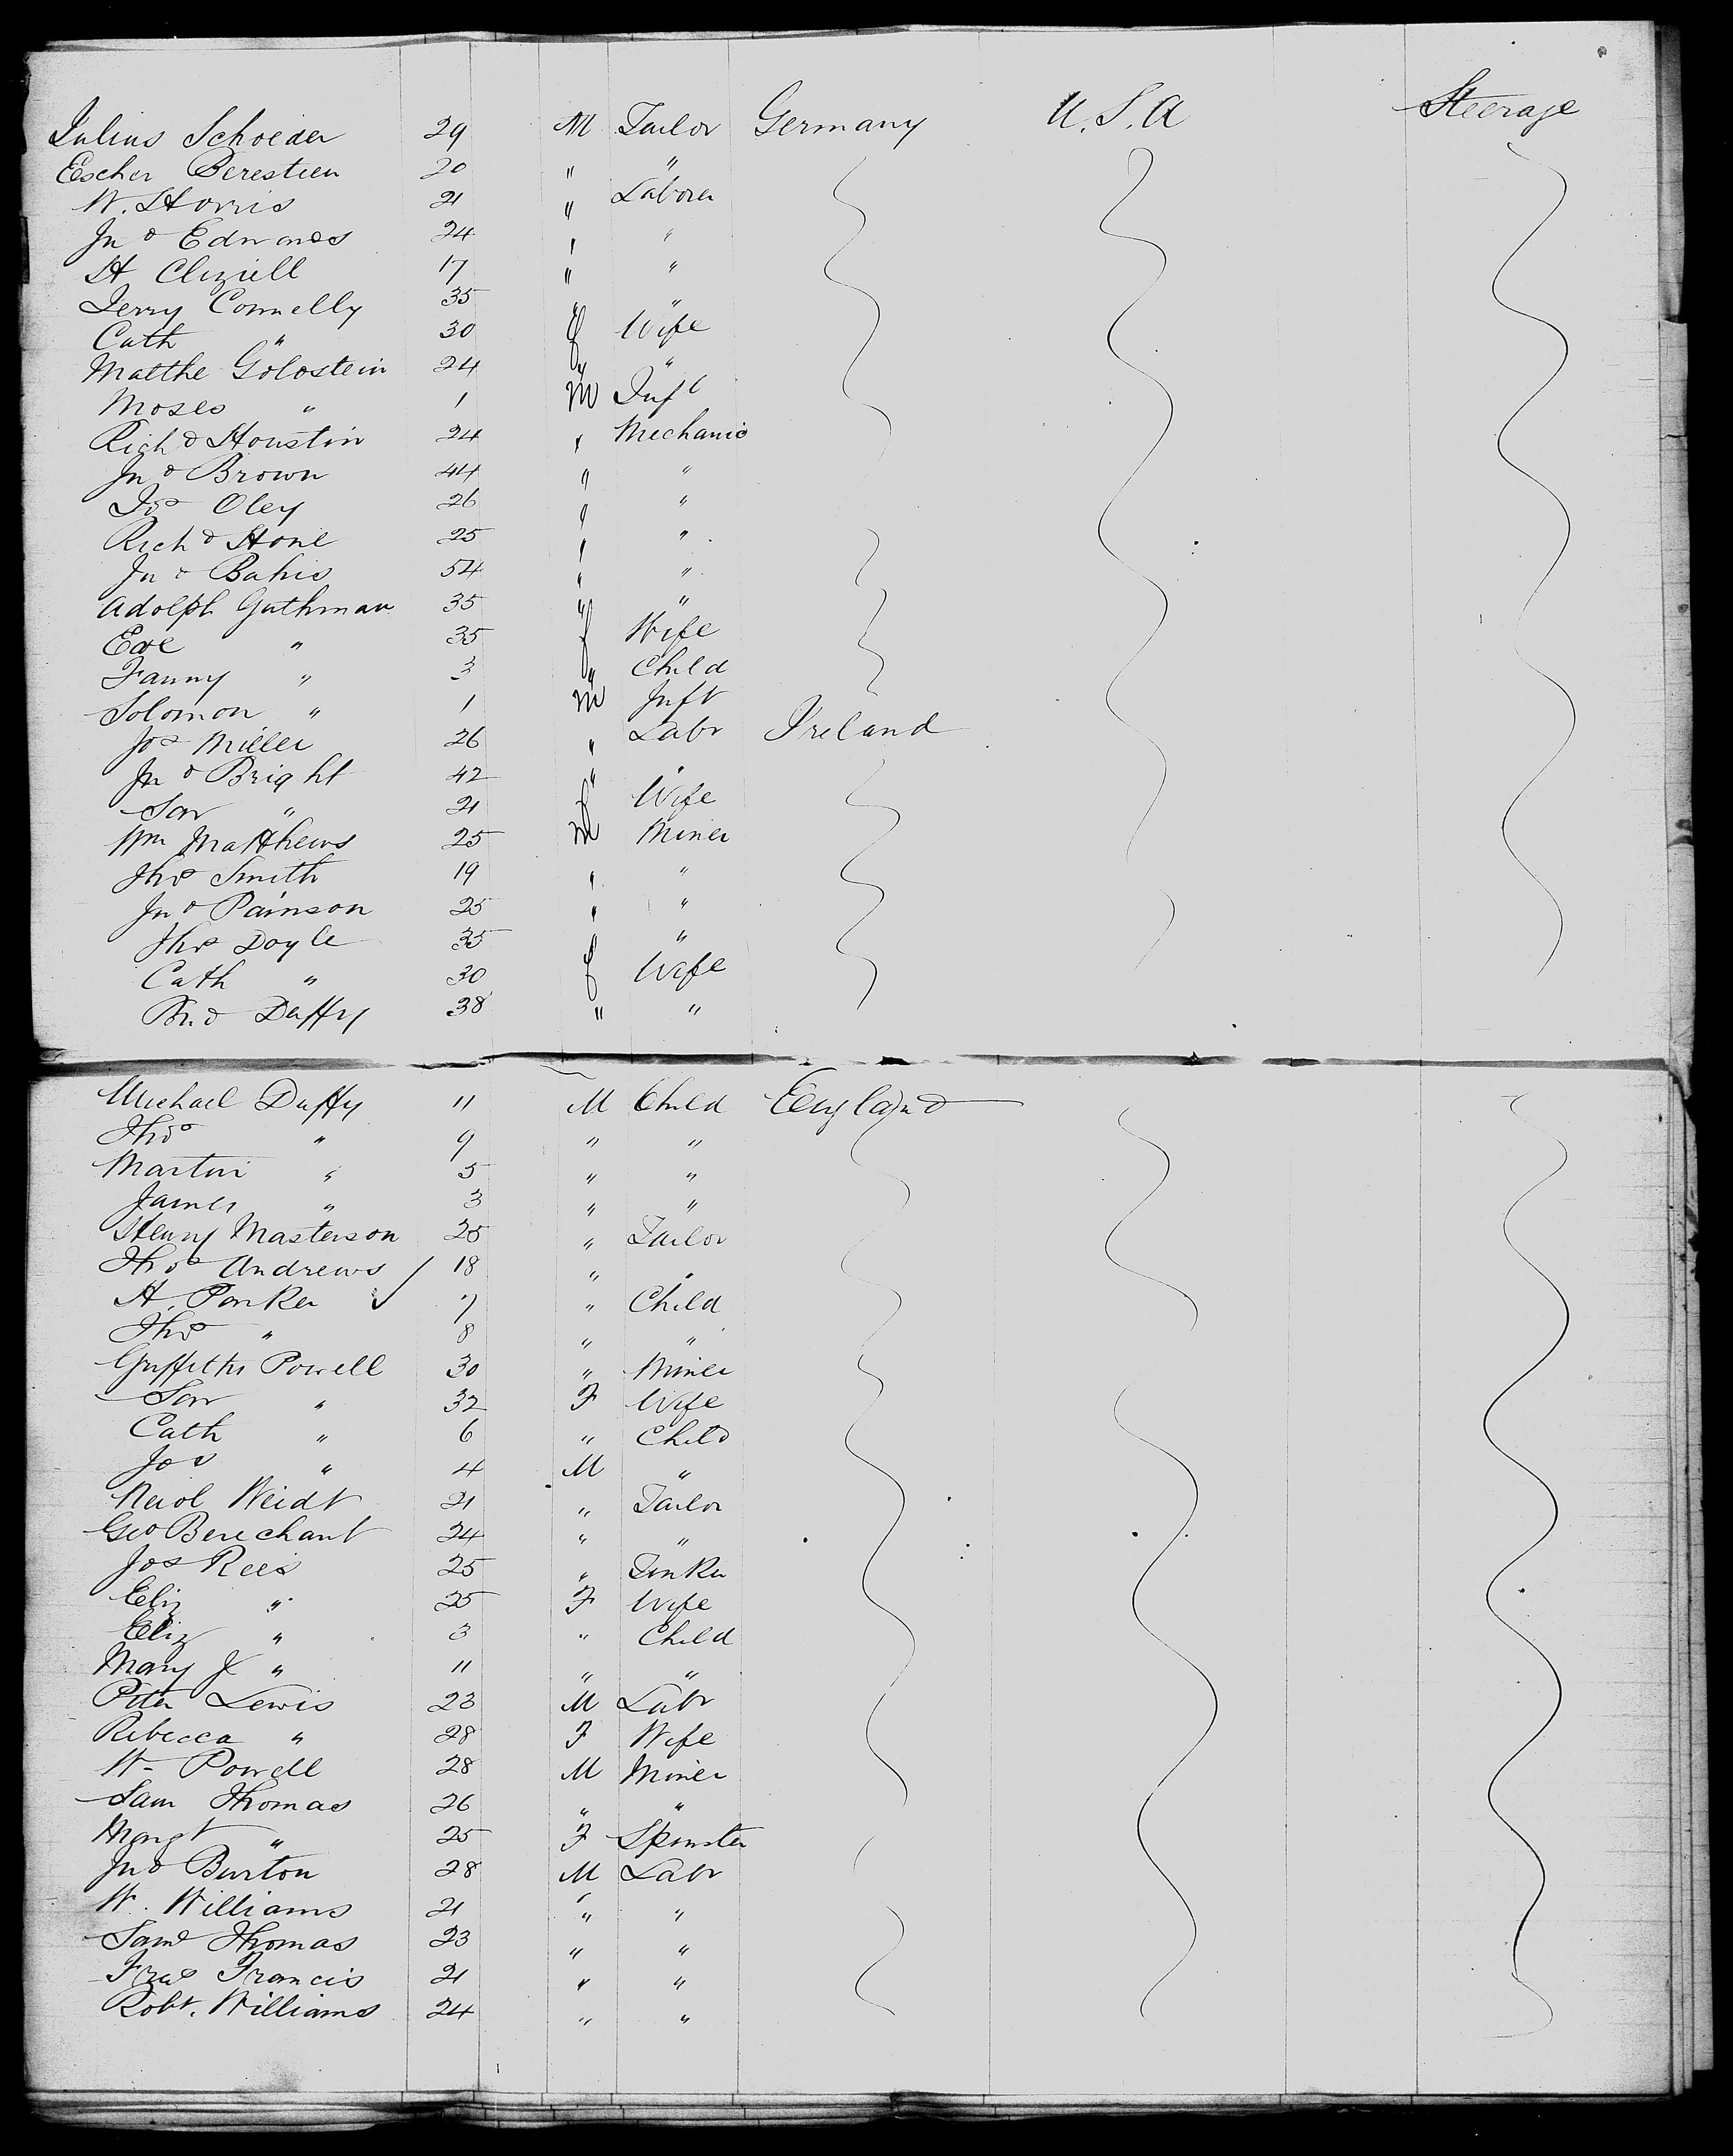 Julius Schoeder 29 M Tailor Germany U.S.A Steerage
Escher Berestien 20 " "
W. Harris 21 " Laborer
Jno Edwards 24 " "
H Cliziell 17 " "
Jerry Connelly 35 " "
Cath " 30 f Wife
Matthe Goldstein 24 " "
Moses " 1 M Inft
Richd Houstin 24 " Mechanic
Jno Brown 44 " "
Jos Oley 26 " "
Richd Hone 25 " "
Jno Bahis 54 " "
Adolph Guthman 35 " "
Eve " 35 f Wife
Fanny " 3 " Child
Solomon " 1 M Inft
Jos Miller 26 " Labr Ireland
Jno Bright 42 " "
Sar " 21 f Wife
Wm Matthews 25 M Miner
Thos Smith 19 " "
Jno Painson 25 " "
Thos Doyle 35 "
Cath " 30 f Wife
Duffy 38 " "
Michael Duffy 11 M Child England
Thos " 9 " "
Martin " 5 " "
James " 3 " "
Henry Masterson 25 " Tailor
Thos Andrews / 18 " "
H. Parker ✓ 7 " Child
Thos " 8 " "
Griffiths Powell 30 " Miner
Sar " 32 F Wife
Cath " 6 " Child
Jos " 4 M "
Weidt 21 " Tailor
Geo Berechant 24 " "
Jos Rees 25 "
Eliz " 25 F Wife
Eliz " 3 " Child
Mary J " 11 " "
Peter Lewis 23 M Labr
Rebecca " 28 F Wife
W Powell 28 M Miner
Sam Thomas 26 " "
Margt " 25 F Spinster
Jno Burton 28 M Labr
W. Williams 21 " "
Saml Thomas 23 " "
Fras Francis 21 " "
Robt. Williams 24 " "